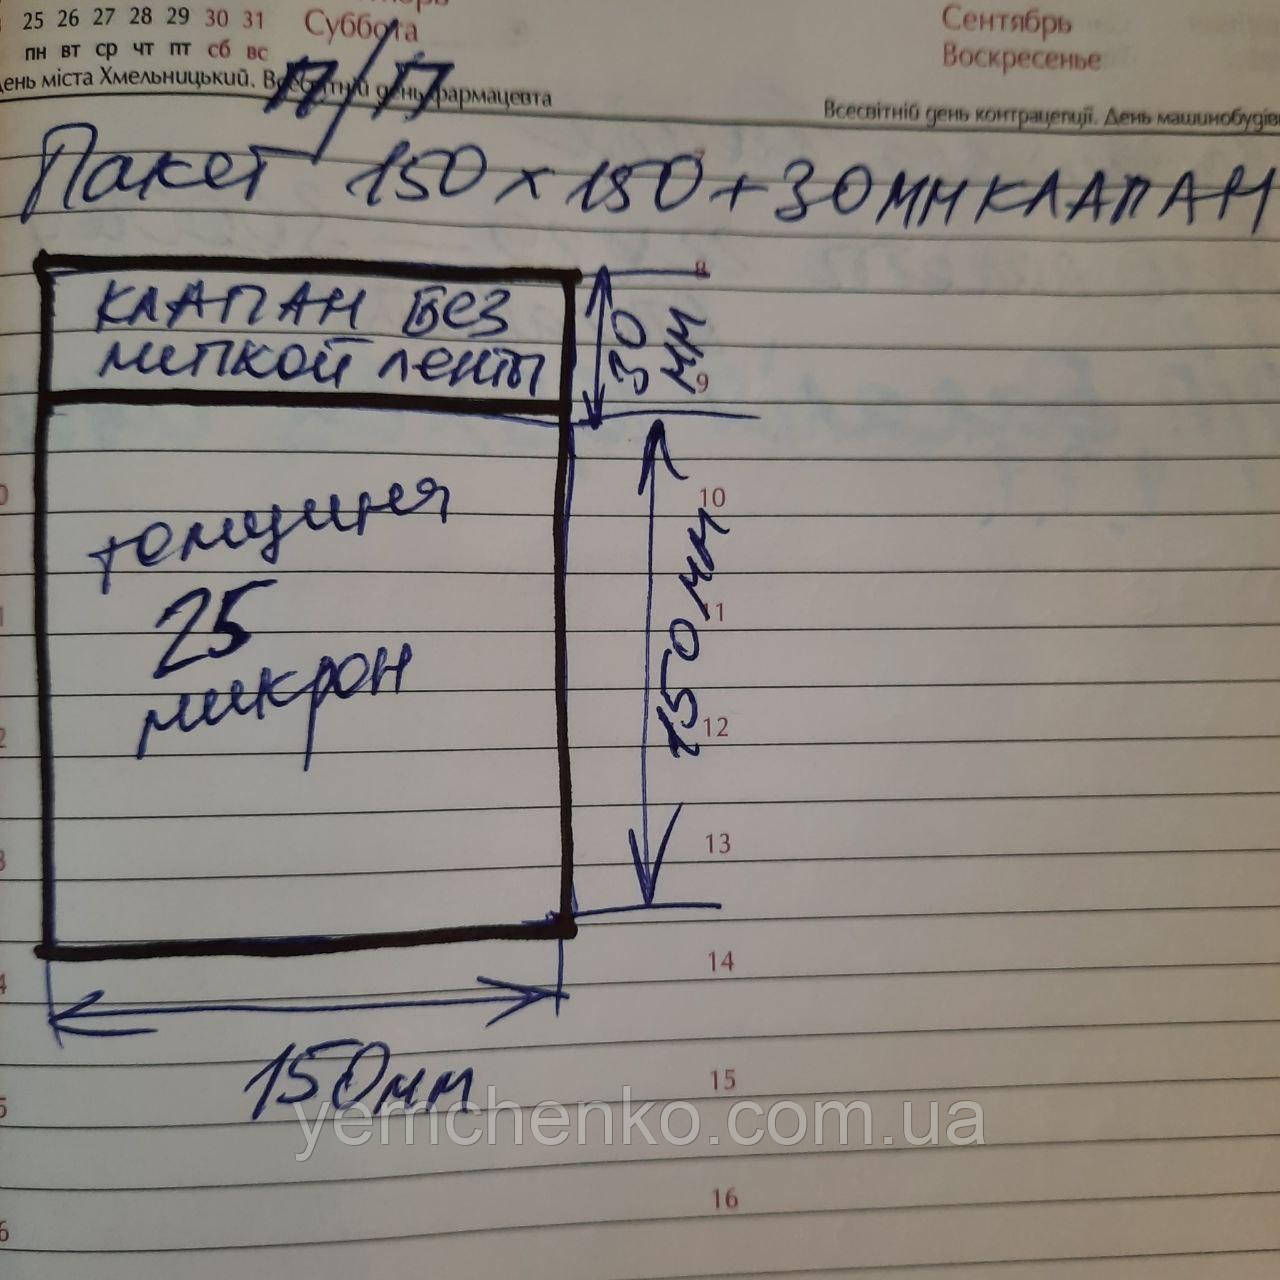 25 26 27 28 29 30 31
Суббота
Сентябрь
пн вт ср чт пт сб вс
Воскресенье
День міста Хмельницький. Всесвітній день фармацевта
Всесвітній день контрацепції. День машинобудів
П/П
Пакет 150 х 150 + 30 мм КЛАПАН
КЛАПАН БЕЗ
липкой ленты
30
мм
8
9
толщиня
25
микрон
10
11
150 мм
12
13
14
150мм
15
yemchenko.com.ua
16